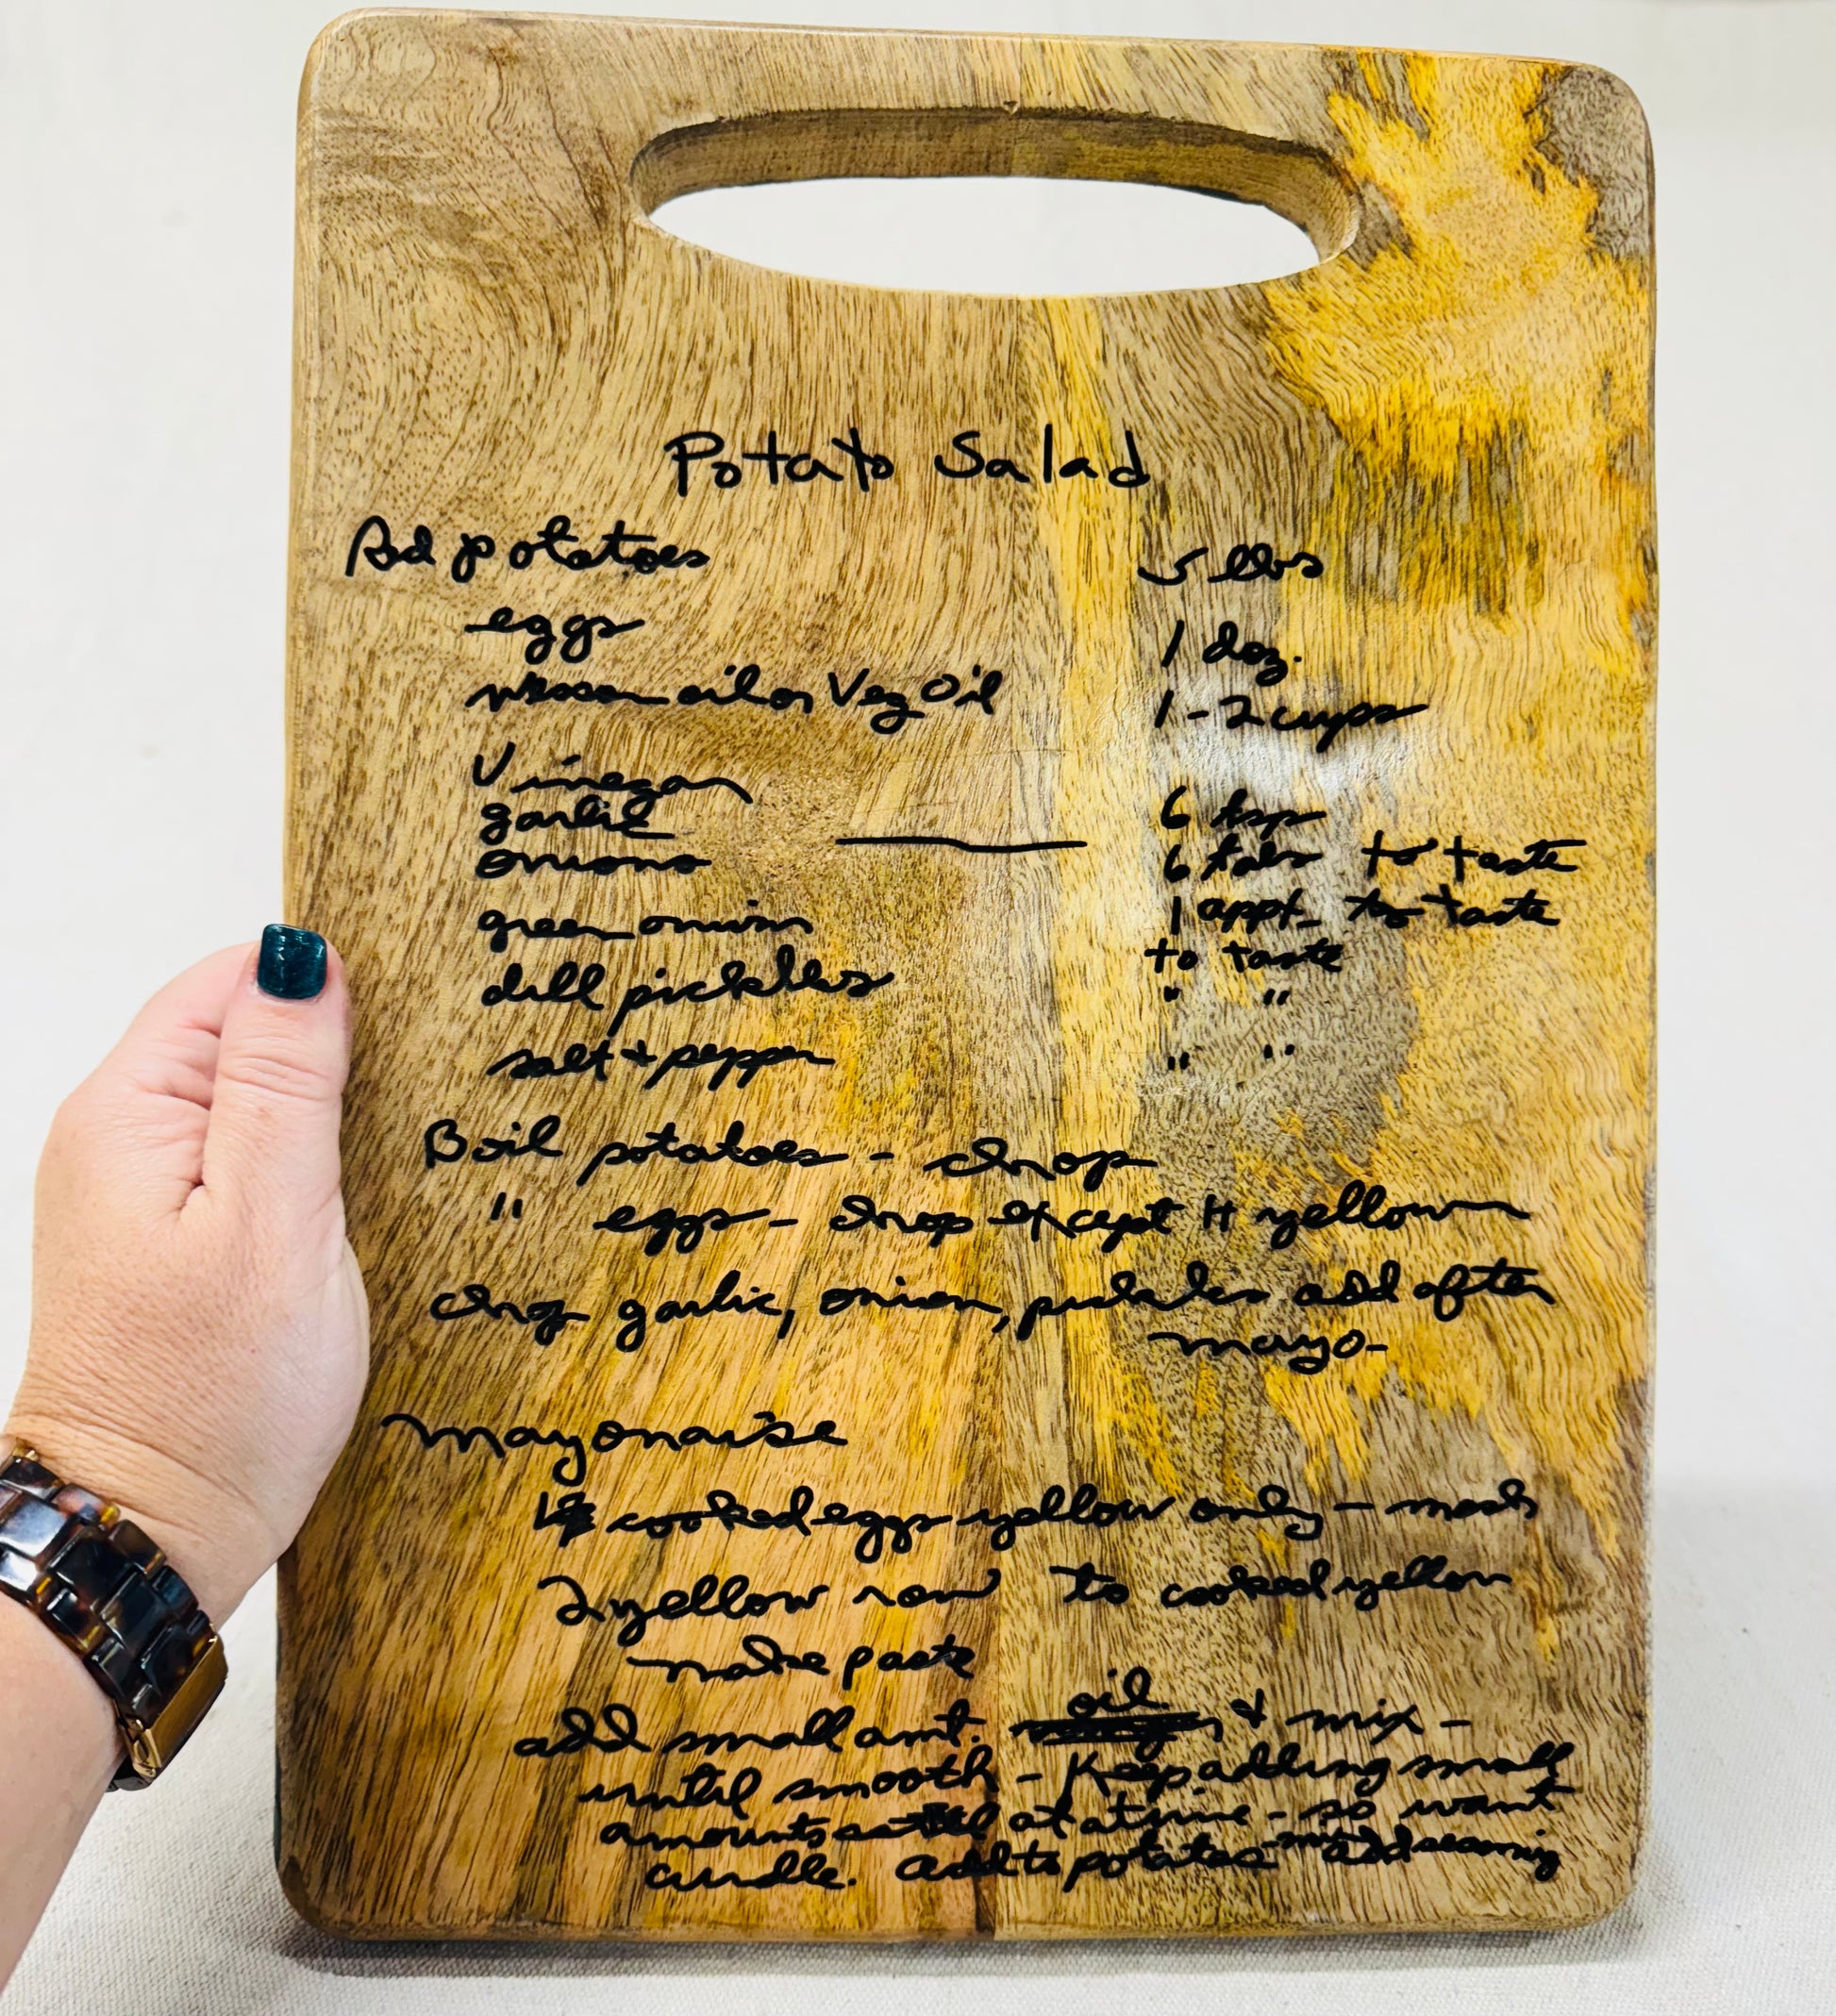 Potato Salad
Red potatoes 5 lbs
eggs 1 doz.
wesson oil or Veg Oil 1-2 cups
Vinegar 6 tsp
garlic 6 tabs to taste
onions 1 appt. to taste
green onions to taste
dill pickles " "
salt + pepper " "
Boil potatoes - chop
" eggs - chop except yellow
chop garlic, onion, pickles add after
mayo-
Mayonaise
cooked eggs yellow only - mash
2 yellow raw to cooked yellow
make paste
oil
add small amt. + mix -
until smooth - Keep adding small
amounts at a time - so wont
curdle. add to potatoes add seasoning